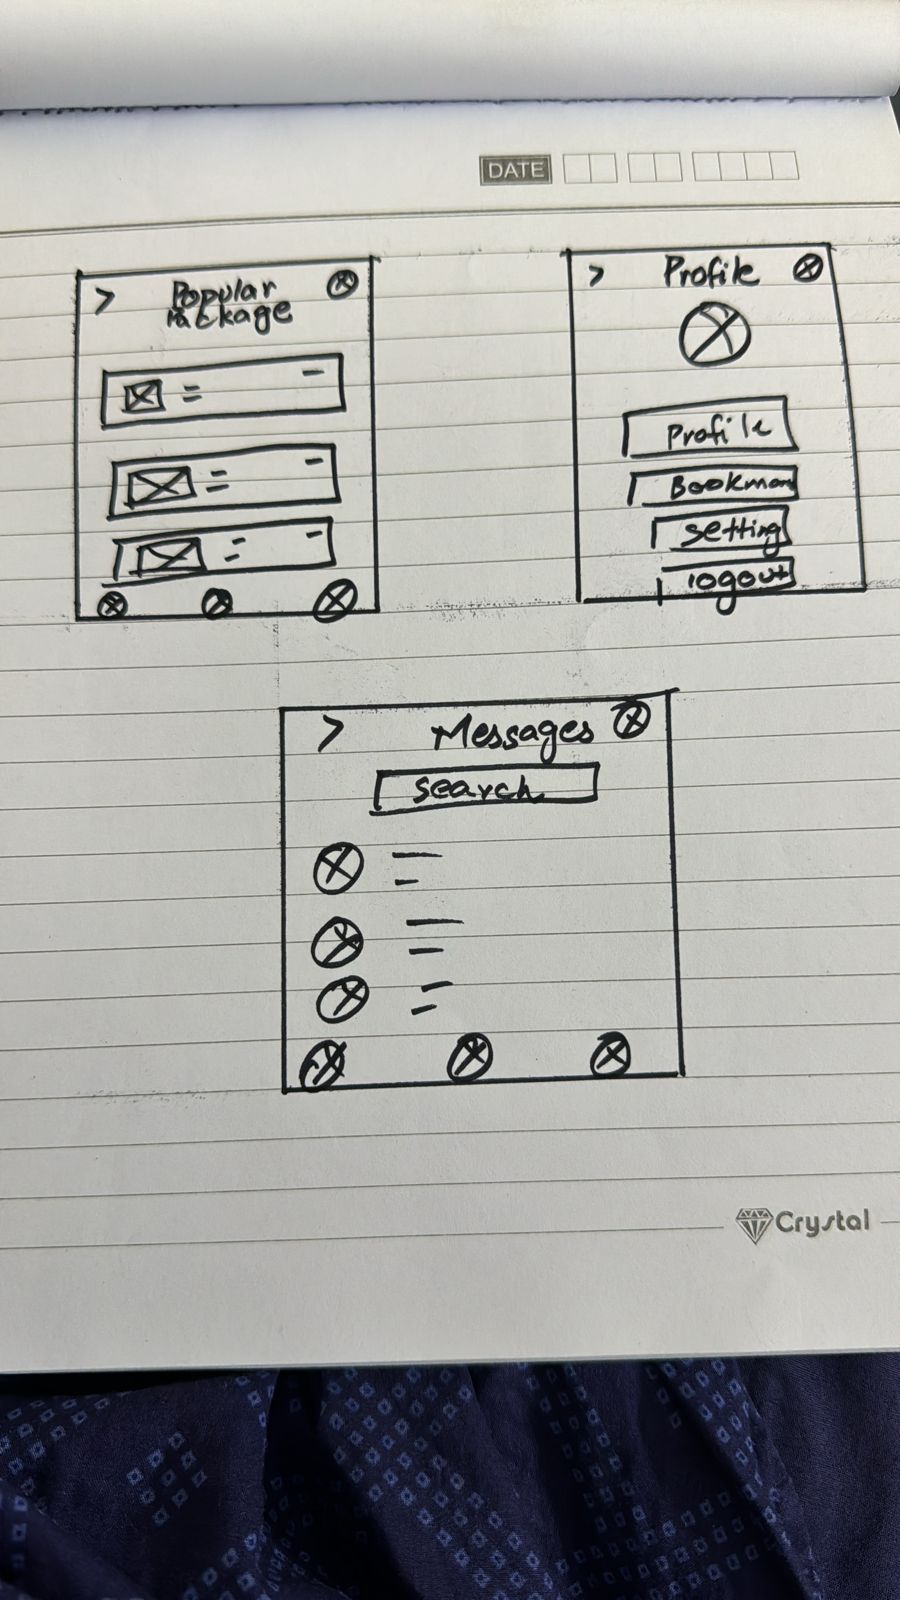 DATE
>
Popular
Package
>
Profile
Profile
Bookmar
setting
logout
>
Messages
search
Crystal